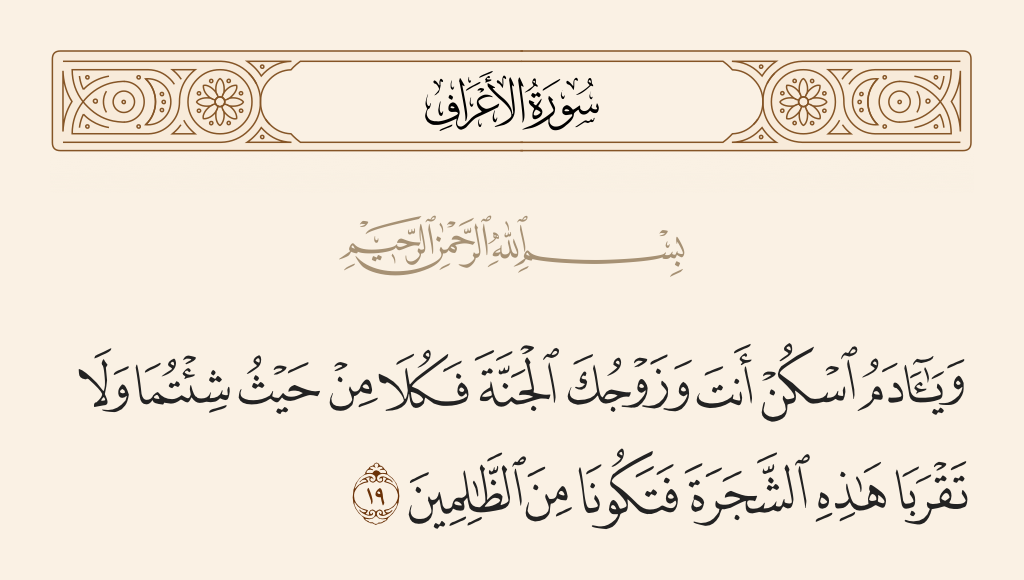 سُورَةُ الأَعْرَافِ
بِسْمِ ٱللَّهِ ٱلرَّحْمَٰنِ ٱلرَّحِيمِ
وَيَـٰٓـَٔادَمُ ٱسْكُنْ أَنتَ وَزَوْجُكَ ٱلْجَنَّةَ فَكُلَا مِنْ حَيْثُ شِئْتُمَا وَلَا
تَقْرَبَا هَـٰذِهِ ٱلشَّجَرَةَ فَتَكُونَا مِنَ ٱلظَّـٰلِمِينَ ١٩